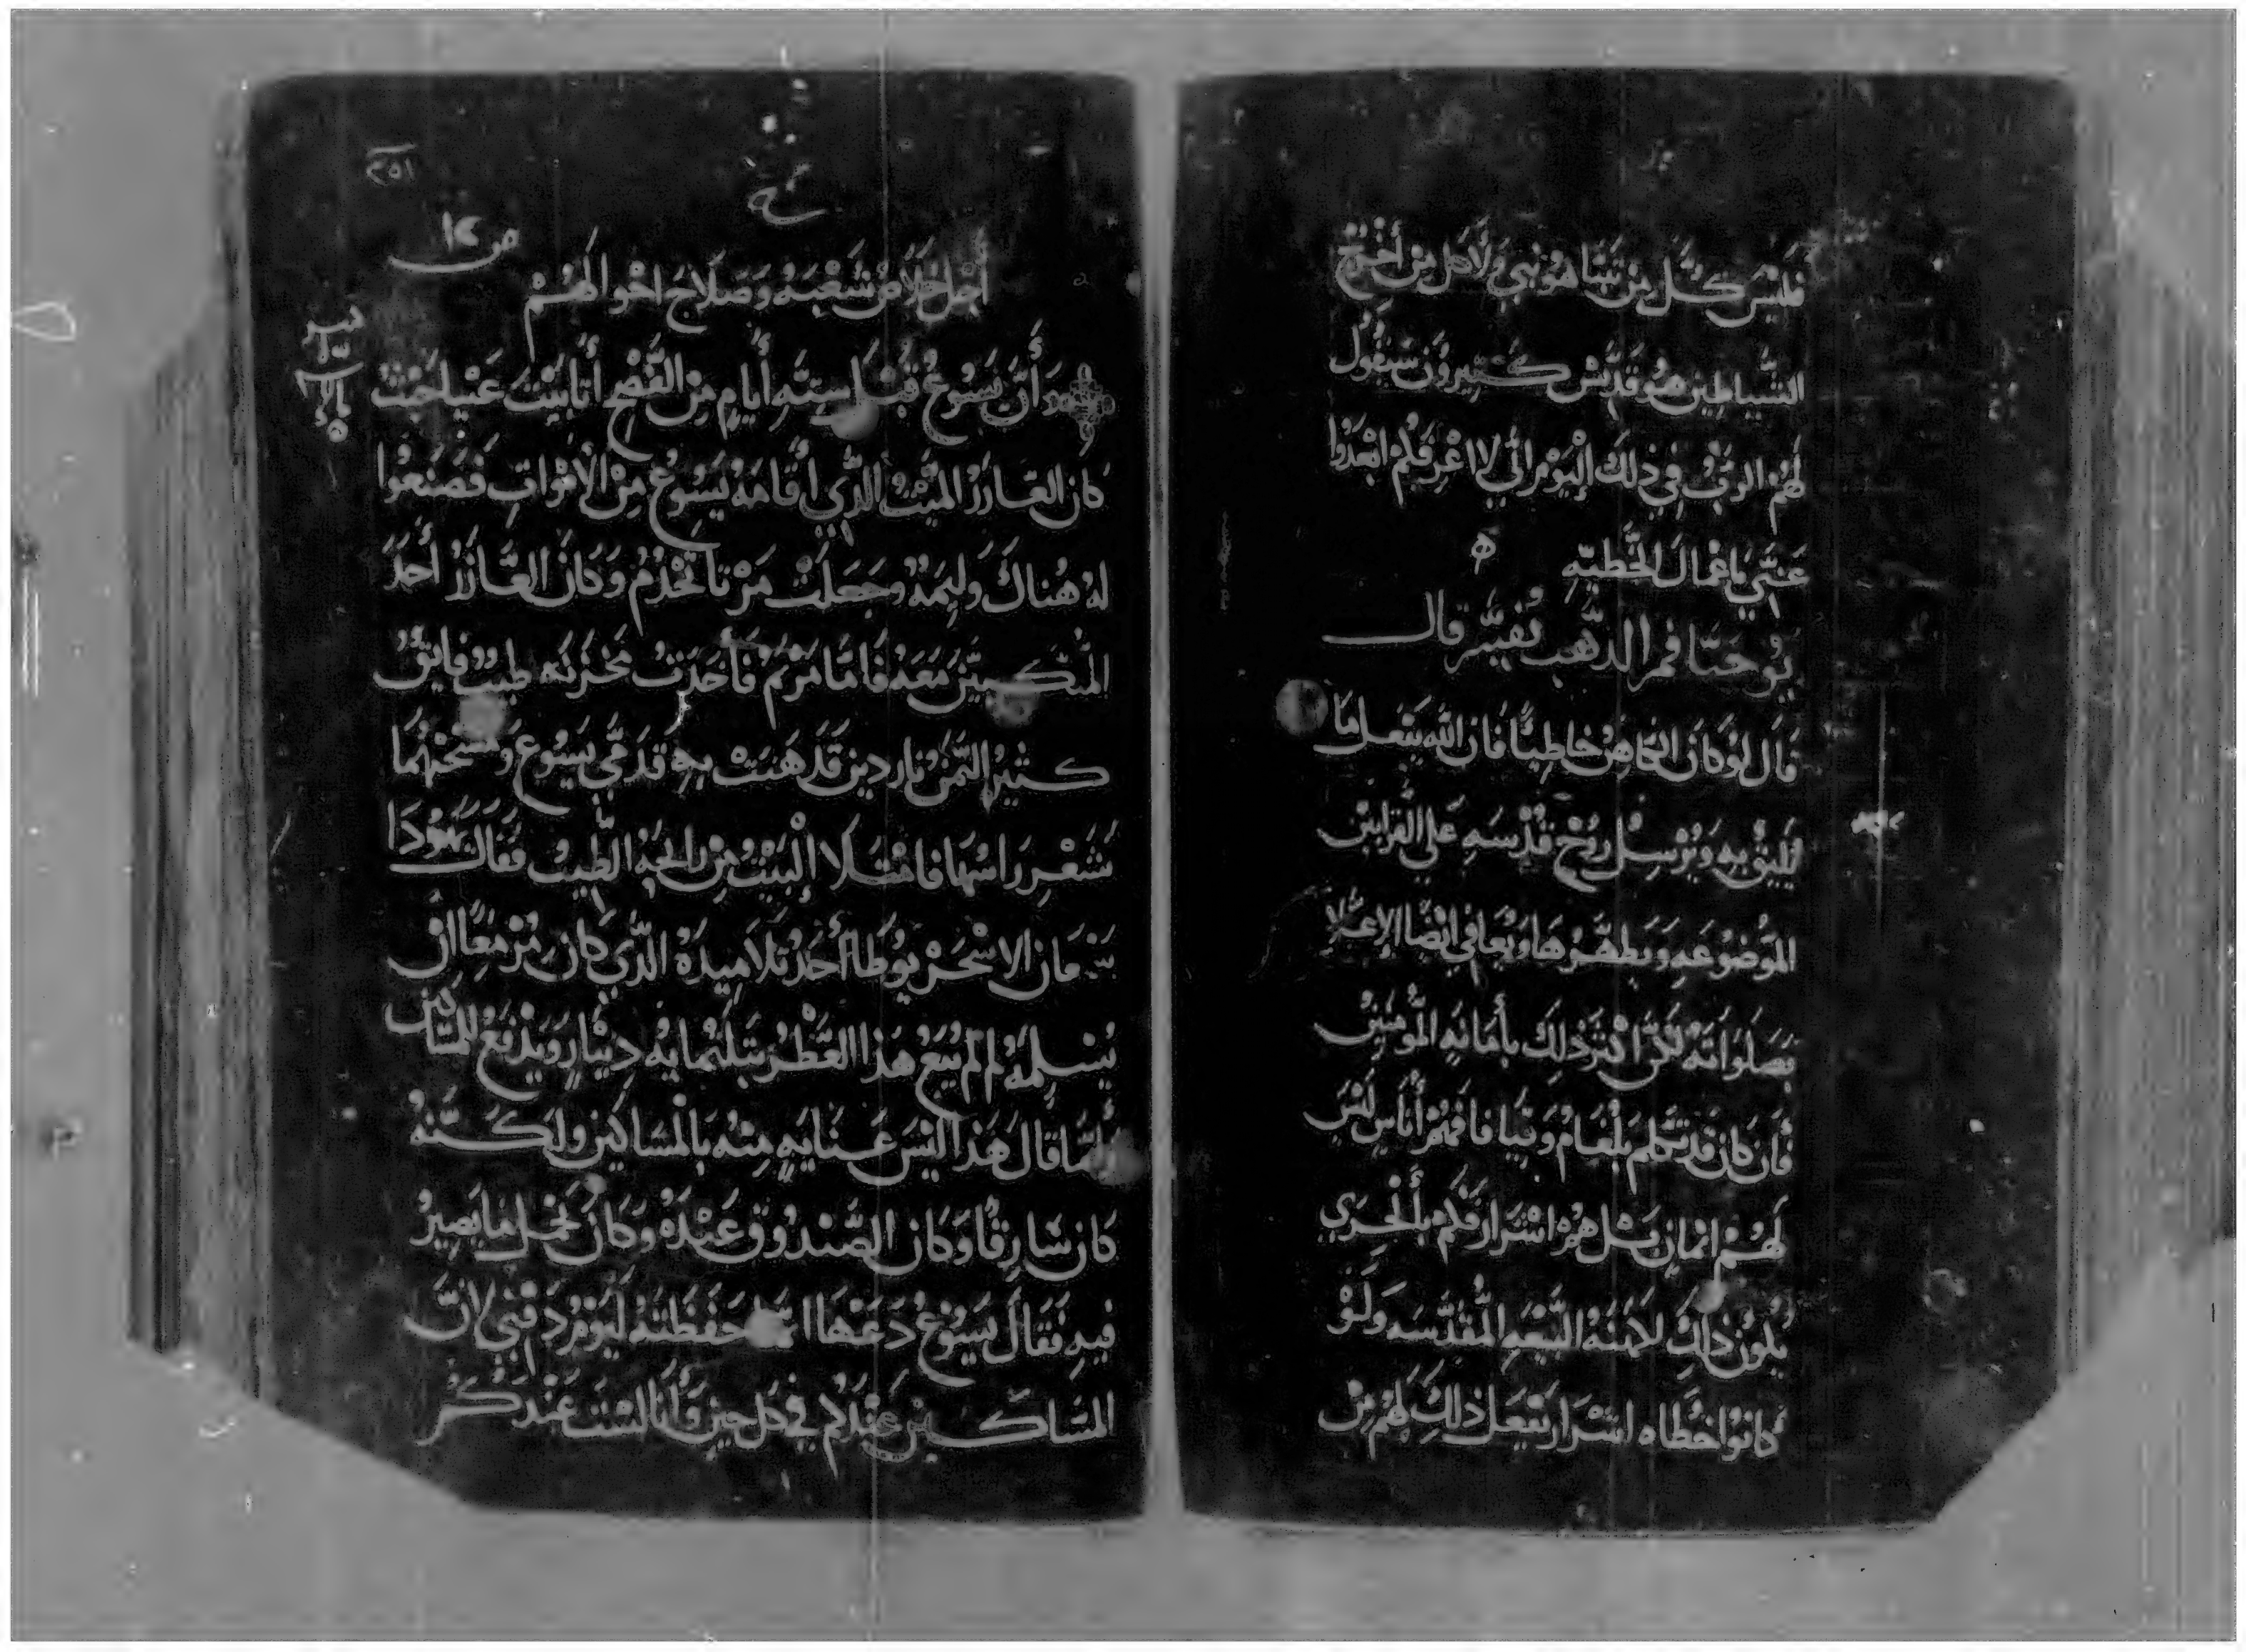 فليس كل من تنبا هو نبي ولا كل من أخرج
الشياطين هو قديس كثيرون سيقول
لهم الرب في ذلك اليوم اني لا اعرفكم ابعدوا
عني ياعمال الخطيه ه
يوحنا فم الذهب تفسير قال
قال لو كان الكاهن خاطيًا فان الله يفعل ما
يليق به ويرسل روح قدسه على القرابين
الموضوعه ويطهرها ويعافي ايضا الاعلا
بصلواته لكن اكثر ذلك بأمانه المومنين
فان كان قد تكلم بلعام وقيافا فمهم أناس ليس
لهم ايمان بمثل هذه اسرار فكم بألحري
يكون ذلك لامنه البيعه المقدسه ولو
كانوا خطاه اسرار يفعل ذلك لهم من
٢٥١
ص ١٢
أجل خلاص شعبه وصلاح احوالهم
وأن يسوع قبل سته أيام من الفصح أتا بيت عنيا حيث
كان العازر الميت الذي أقامه يسوع من الأموات فصنعوا
له هناك وليمه وجعلت مرتا تخدم وكان العازر أحد
المتكيين معه فأما مريم فأخذت مخزنه طيب فايق
كثير الثمن ناردين فدهنت به قدمي يسوع ومسحتهما
بشعر راسها فامتلا البيت من رايحه الطيب فقال يهوذا
سمعان الاسخريوطا أحد تلاميذه الذي كان مزمعًا ان
يسلمه لم لم يبع هذا العطر بثلثمايه دينار ويدفع للمساكين
وانما قال هذا ليس عنايه منه بالمساكين ولكنه
كان سارقًا وكان الصندوق عنده وكان يحمل ما يصير
فيه فقال يسوع دعها انما حفظته ليوم دفني لان
المساكين عندكم في كل حين وأنا لست عندكم